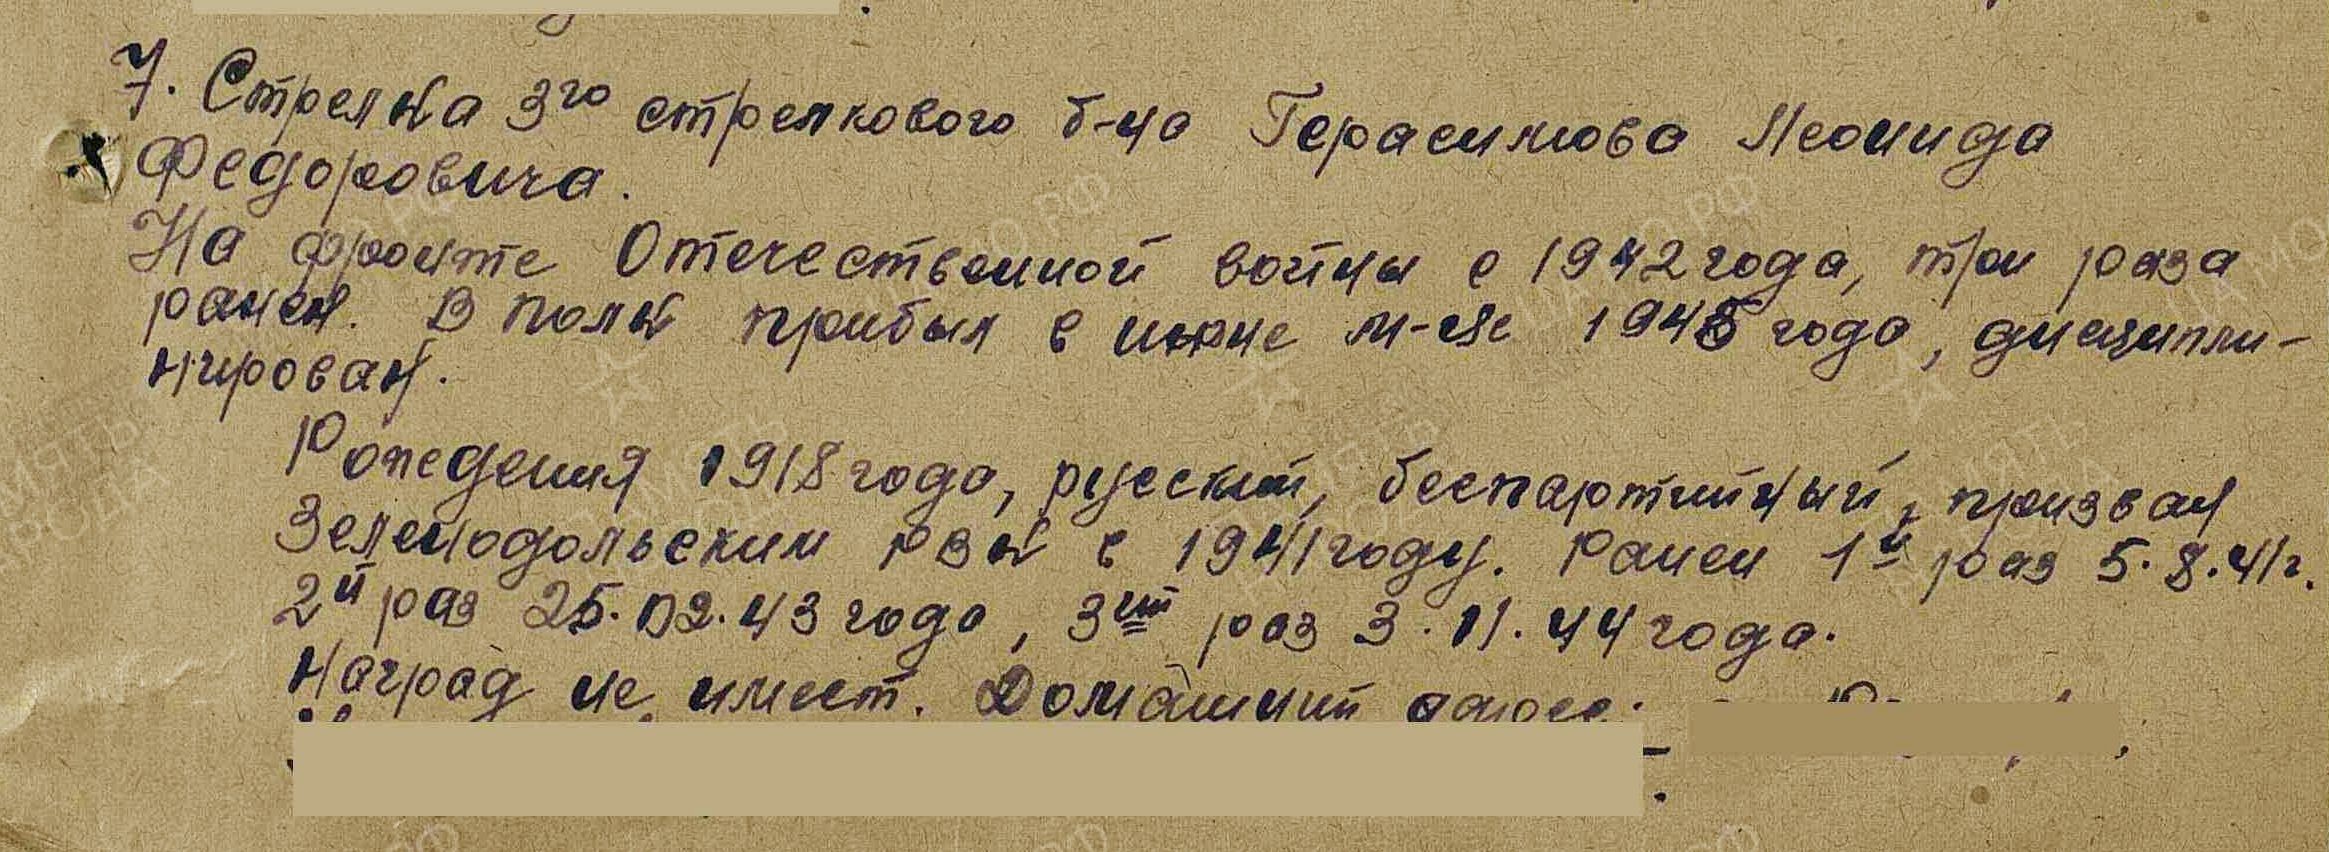 7. Стрелка 3го стрелкового б-на Герасимова Леонида
Федоровича.
На фронте Отечественной войны с 1942 года, три раза
ранен. В полк прибыл в июне м-це 1945 года, дисципли-
нирован.
Рождения 1918 года, русский, беспартийный, призван
Зеленодольским РВК в 1941 году. Ранен 1й раз 5.8.41г.
2й раз 25.02.43 года, 3ий раз 3.11.44 года.
Наград не имеет. Домашний адрес: